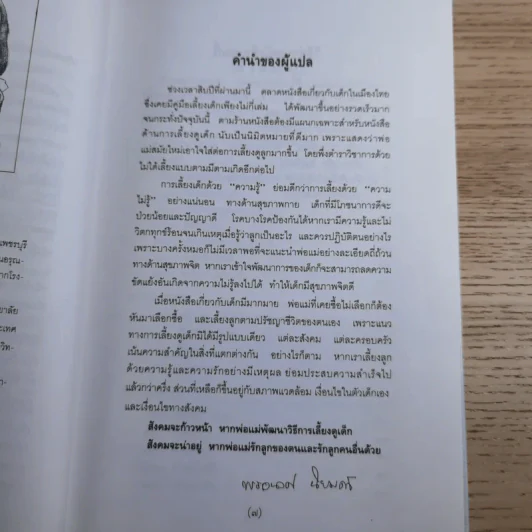 คำนำของผู้แปล
ช่วงเวลาสิบปีที่ผ่านมานี้ ตลาดหนังสือเกี่ยวกับเด็กในเมืองไทย
ซึ่งเคยมีคู่มือเลี้ยงเด็กเพียงไม่กี่เล่ม ได้พัฒนาขึ้นอย่างรวดเร็วมาก
จนกระทั่งปัจจุบันนี้ ตามร้านหนังสือต้องมีแผนกเฉพาะสำหรับหนังสือ
ด้านการเลี้ยงดูเด็ก นับเป็นนิมิตหมายที่ดีมาก เพราะแสดงว่าพ่อ
แม่สมัยใหม่เอาใจใส่ต่อการเลี้ยงดูลูกมากขึ้น โดยพึ่งตำราวิชาการด้วย
ไม่ได้เลี้ยงแบบตามมีตามเกิดอีกต่อไป
การเลี้ยงเด็กด้วย “ความรู้” ย่อมดีกว่าการเลี้ยงด้วย “ความ
ไม่รู้” อย่างแน่นอน ทางด้านสุขภาพกาย เด็กที่มีโภชนาการดีจะ
ป่วยน้อยและปัญญาดี โรคบางโรคป้องกันได้หากเรามีความรู้และไม่
วิตกทุกข์ร้อนจนเกินเหตุเมื่อรู้ว่าลูกเป็นอะไร และควรปฏิบัติตนอย่างไร
เพราะบางครั้งหมอก็ไม่มีเวลาพอที่จะแนะนำพ่อแม่อย่างละเอียดถี่ถ้วน
ทางด้านสุขภาพจิต หากเราเข้าใจพัฒนาการของเด็กก็จะสามารถลดความ
ขัดแย้งอันเกิดจากความไม่รู้ลงไปได้ ทำให้เด็กมีสุขภาพจิตดี
เมื่อหนังสือเกี่ยวกับเด็กมีมากมาย พ่อแม่ที่เคยซื้อไม่เลือกก็ต้อง
หันมาเลือกซื้อ และเลี้ยงลูกตามปรัชญาชีวิตของตนเอง เพราะแนว
ทางการเลี้ยงดูเด็กมิได้มีรูปแบบเดียว แต่ละสังคม แต่ละครอบครัว
เน้นความสำคัญในสิ่งที่แตกต่างกัน อย่างไรก็ตาม หากเราเลี้ยงลูก
ด้วยความรู้และความรักอย่างมีเหตุผล ย่อมประสบความสำเร็จไป
แล้วกว่าครึ่ง ส่วนที่เหลือก็ขึ้นอยู่กับสภาพแวดล้อม เงื่อนไขในตัวเด็กเอง
และเงื่อนไขทางสังคม
สังคมจะก้าวหน้า หากพ่อแม่พัฒนาวิธีการเลี้ยงดูเด็ก
สังคมจะน่าอยู่ หากพ่อแม่รักลูกของตนและรักลูกคนอื่นด้วย
(๗)